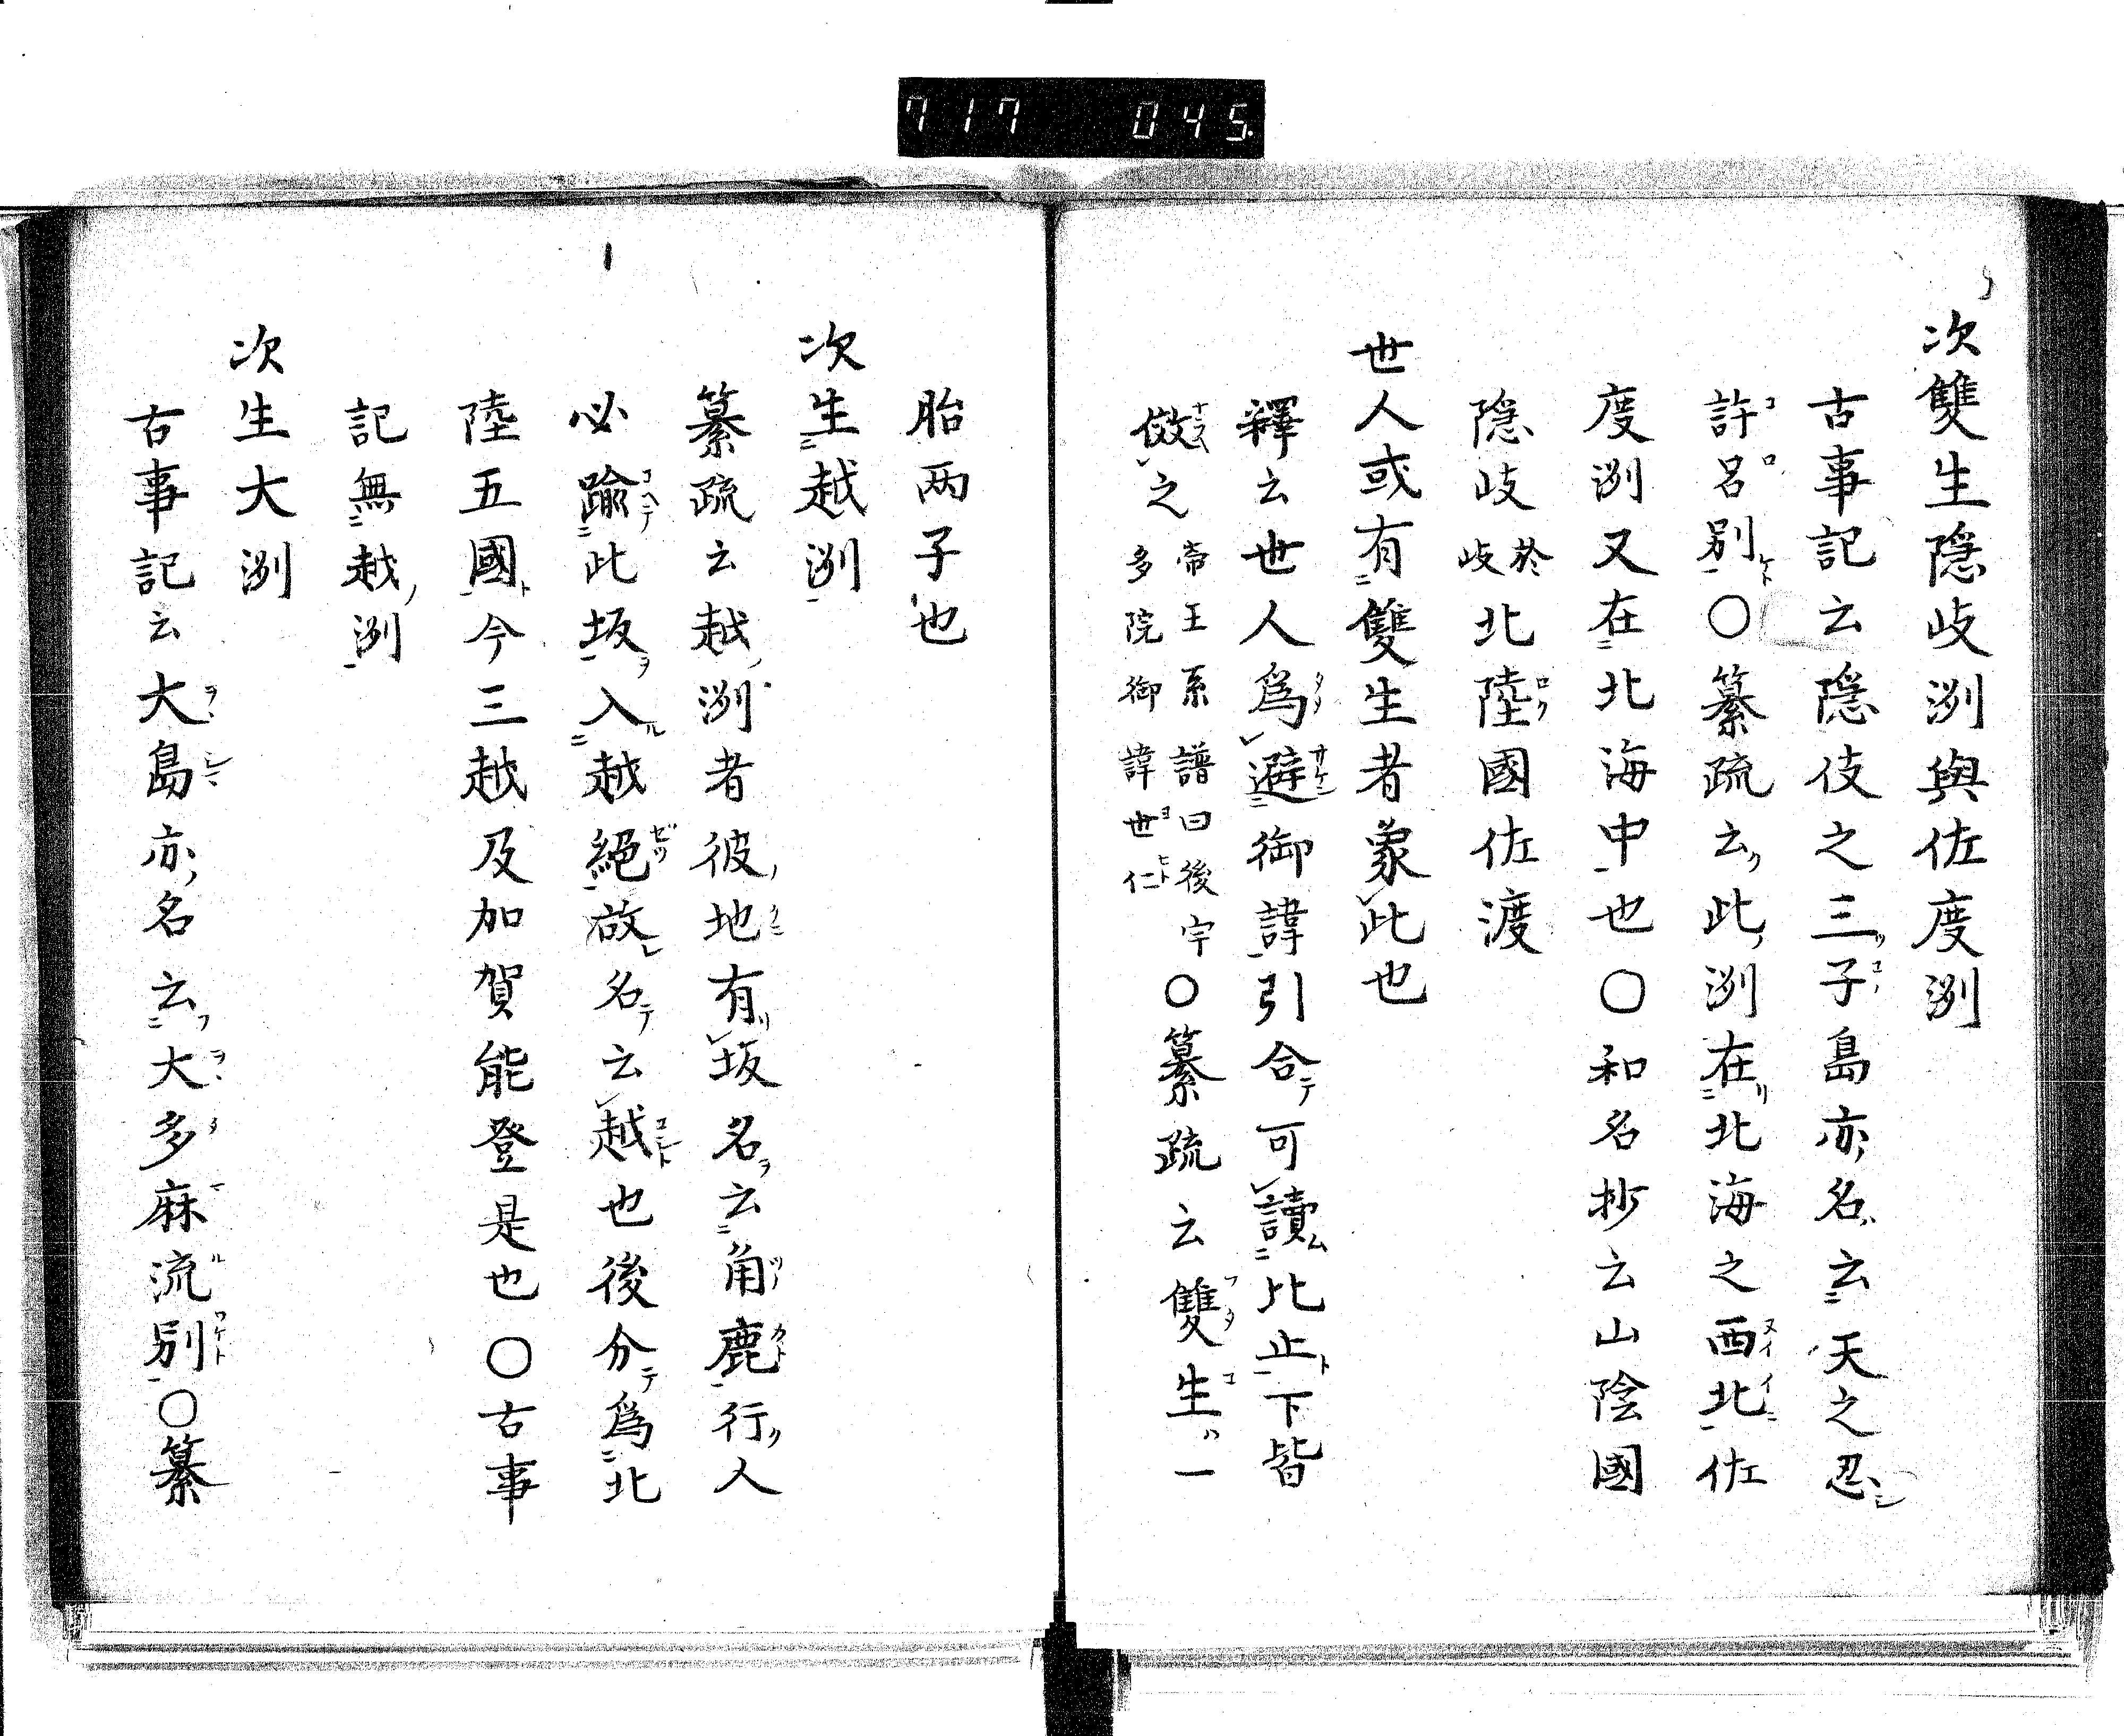 717 045.
次雙生隱歧洲與佐度洲
古事記云隱伎之三子島亦名云天之忍
許呂別〇纂疏云此洲在北海之西北佐
度洲又在北海中也〇和名抄云山陰國
隱岐於岐北陸國佐渡
世人或有雙生者象此也
釋云世人爲避御諱引合可讀比止下皆
倣之帝王系譜曰後宇多院御諱世仁〇纂疏云雙生一
胎两子也
次生越洲
纂疏云越洲者彼地有坂名云角鹿行人
必踰此坂入越絕故名云越也後分爲北
陸五國今三越及加賀能登是也〇古事
記無越洲
次生大洲
古事記云大島亦名云大多麻流別〇纂